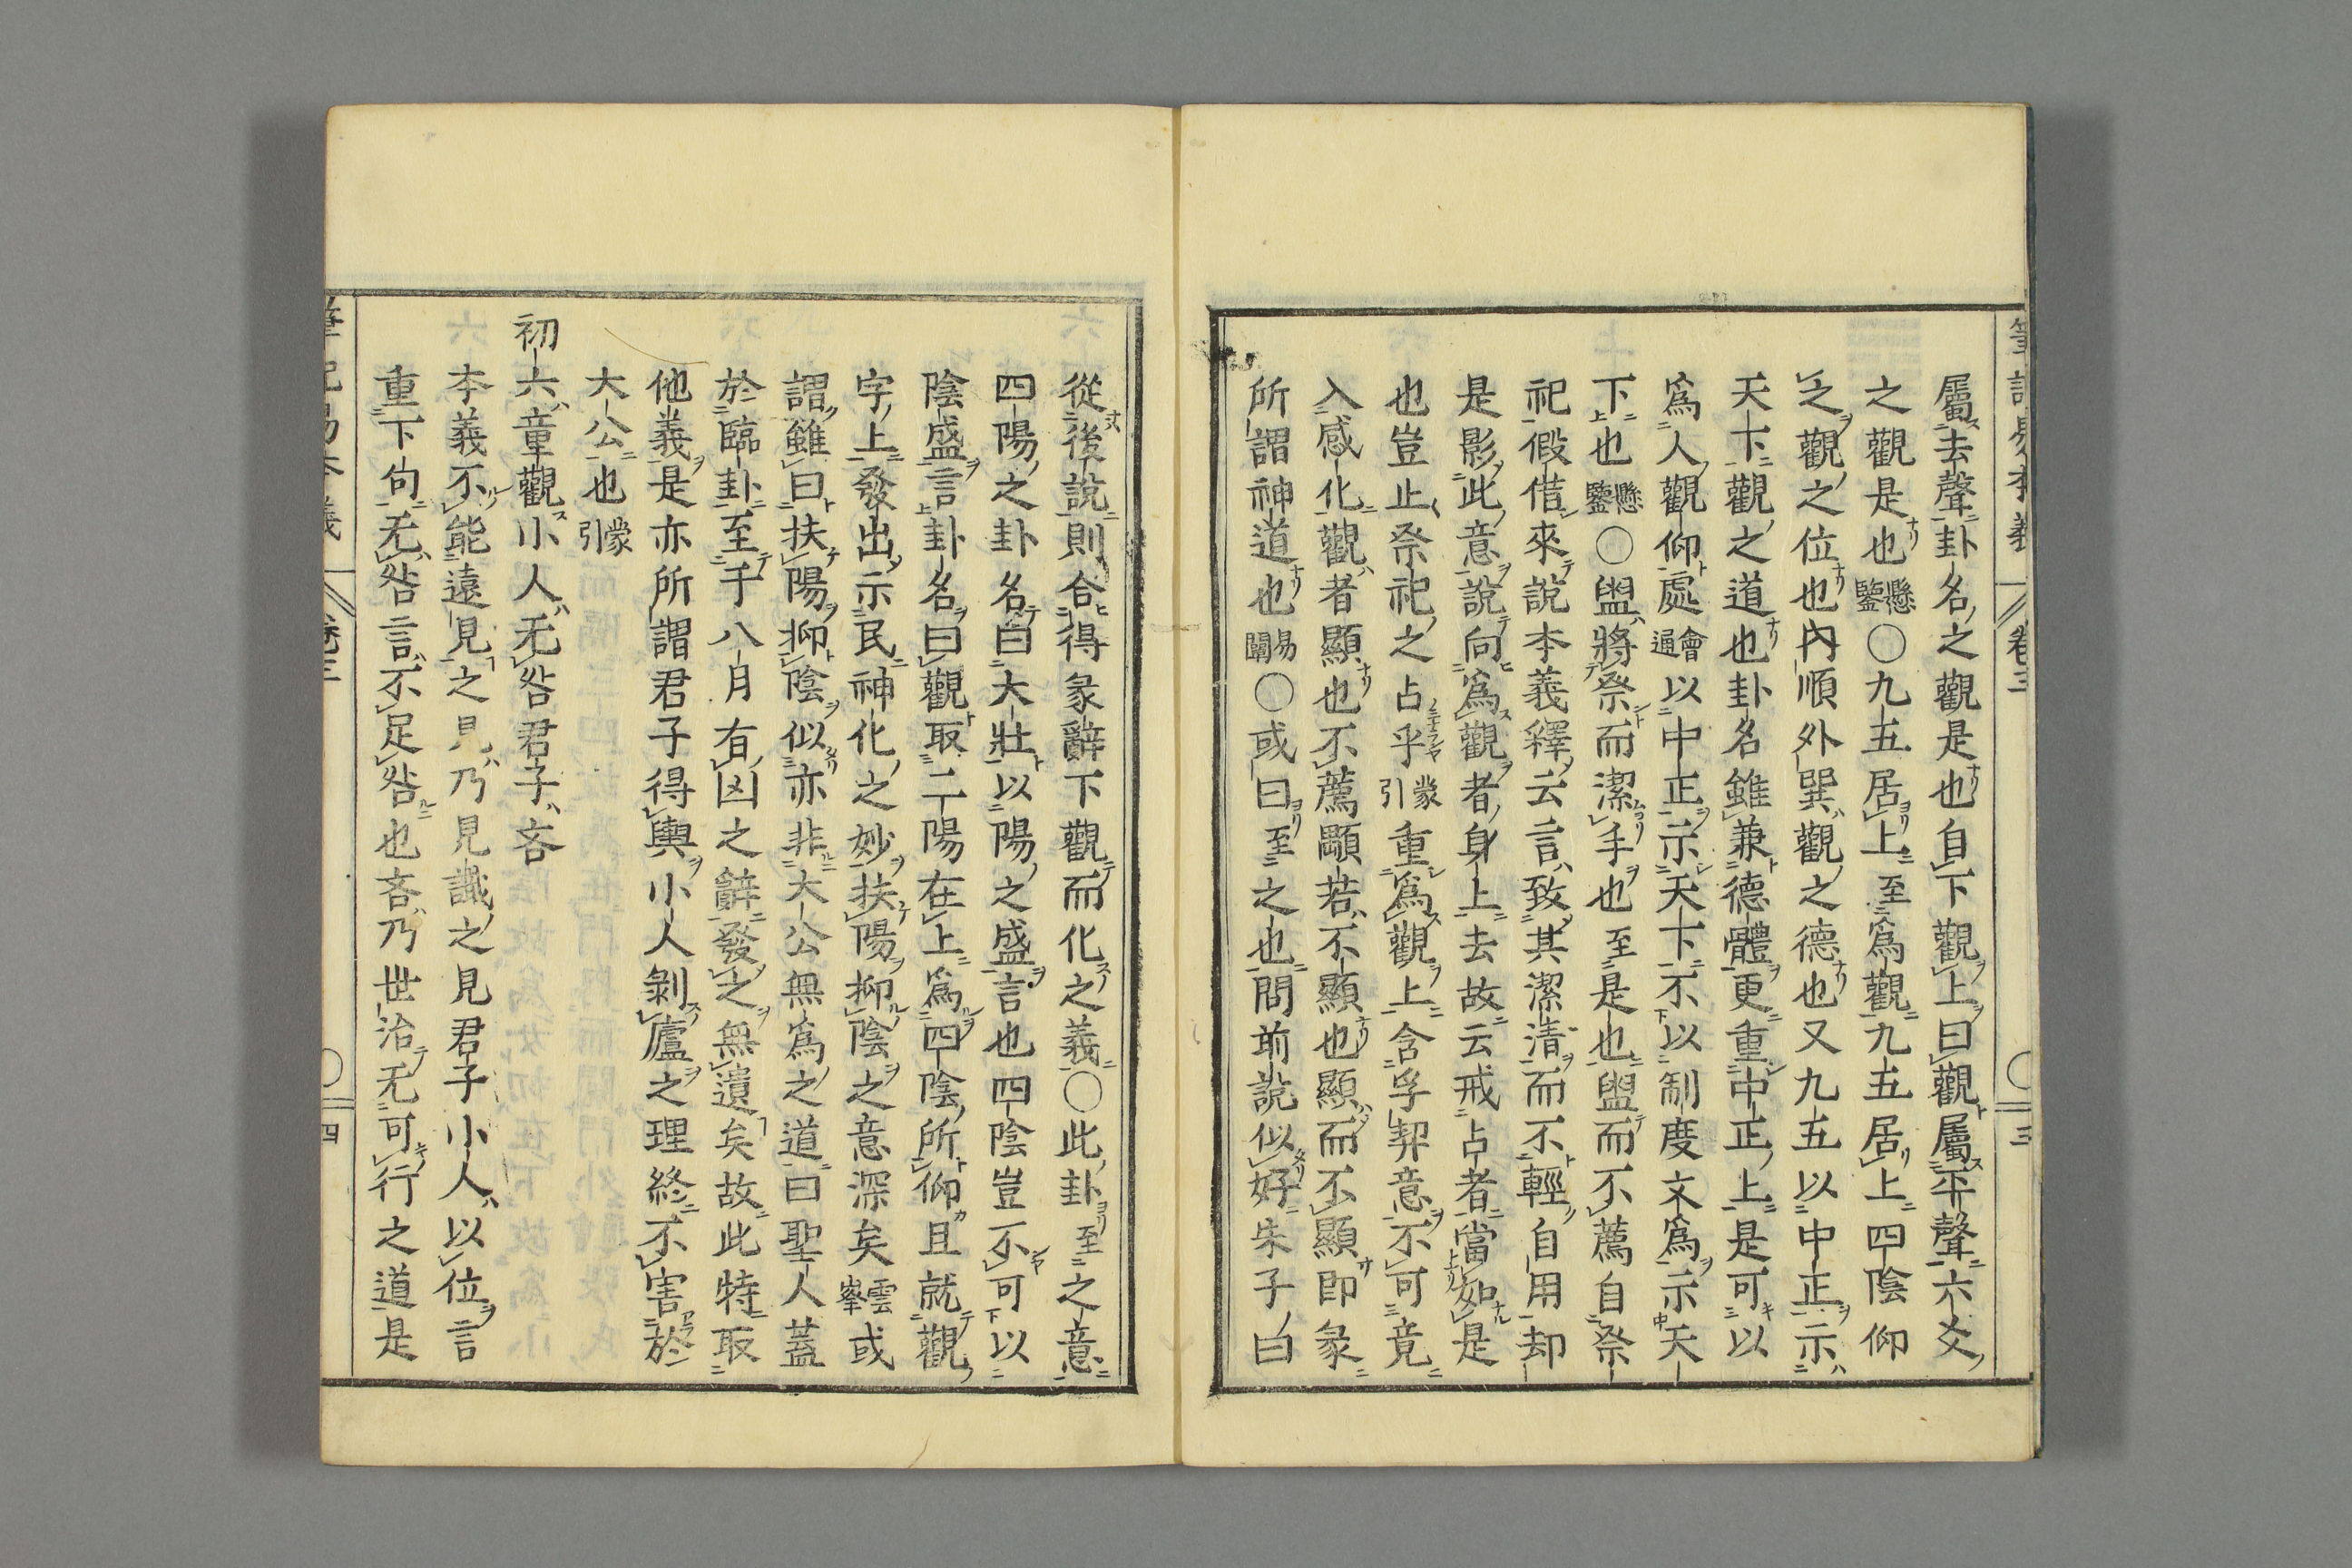 筆記易本義 卷三 三
屬去聲卦名之觀是也自下觀上曰觀屬平聲六爻
之觀是也懸鑒〇九五居上至爲觀九五居上四陰仰
之觀之位也內順外巽觀之德也又九五以中正示
天下觀之道也卦名雖兼德體更重中正上是可以
爲人觀仰處會通以中正示天下不以制度文爲示天
下也懸鑒〇盥將祭而潔手也至是也盥而不薦自祭
祀假借來說本義釋云言致其潔清而不輕自用却
是影此意說向爲觀者身上去故云戒占者當如是
也豈止祭祀之占乎蒙引重爲觀上含孚契意不可竟
入感化觀者顯也不薦顒若不顯也顯而不顯即彖
所謂神道也易闡〇或曰至之也問前說似好朱子曰
從後說則合得彖辭下觀而化之義〇此卦至之意
四陽之卦名曰大壯以陽之盛言也四陰豈不可以
陰盛言卦名曰觀取二陽在上爲四陰所仰且就觀
字上發出示民神化之妙扶陽抑陰之意深矣雲峯或
謂雖曰扶陽抑陰似亦非大公無爲之道曰聖人蓋
於臨卦至于八月有凶之辭發之無遺矣故此特取
他義是亦所謂君子得輿小人剝廬之理終不害於
大公也蒙引
初六童觀小人无咎君子吝
本義不能遠見之見乃見識之見君子小人以位言
重下句无咎言不足咎也吝乃世治无可行之道是
筆記易本義 卷三 四